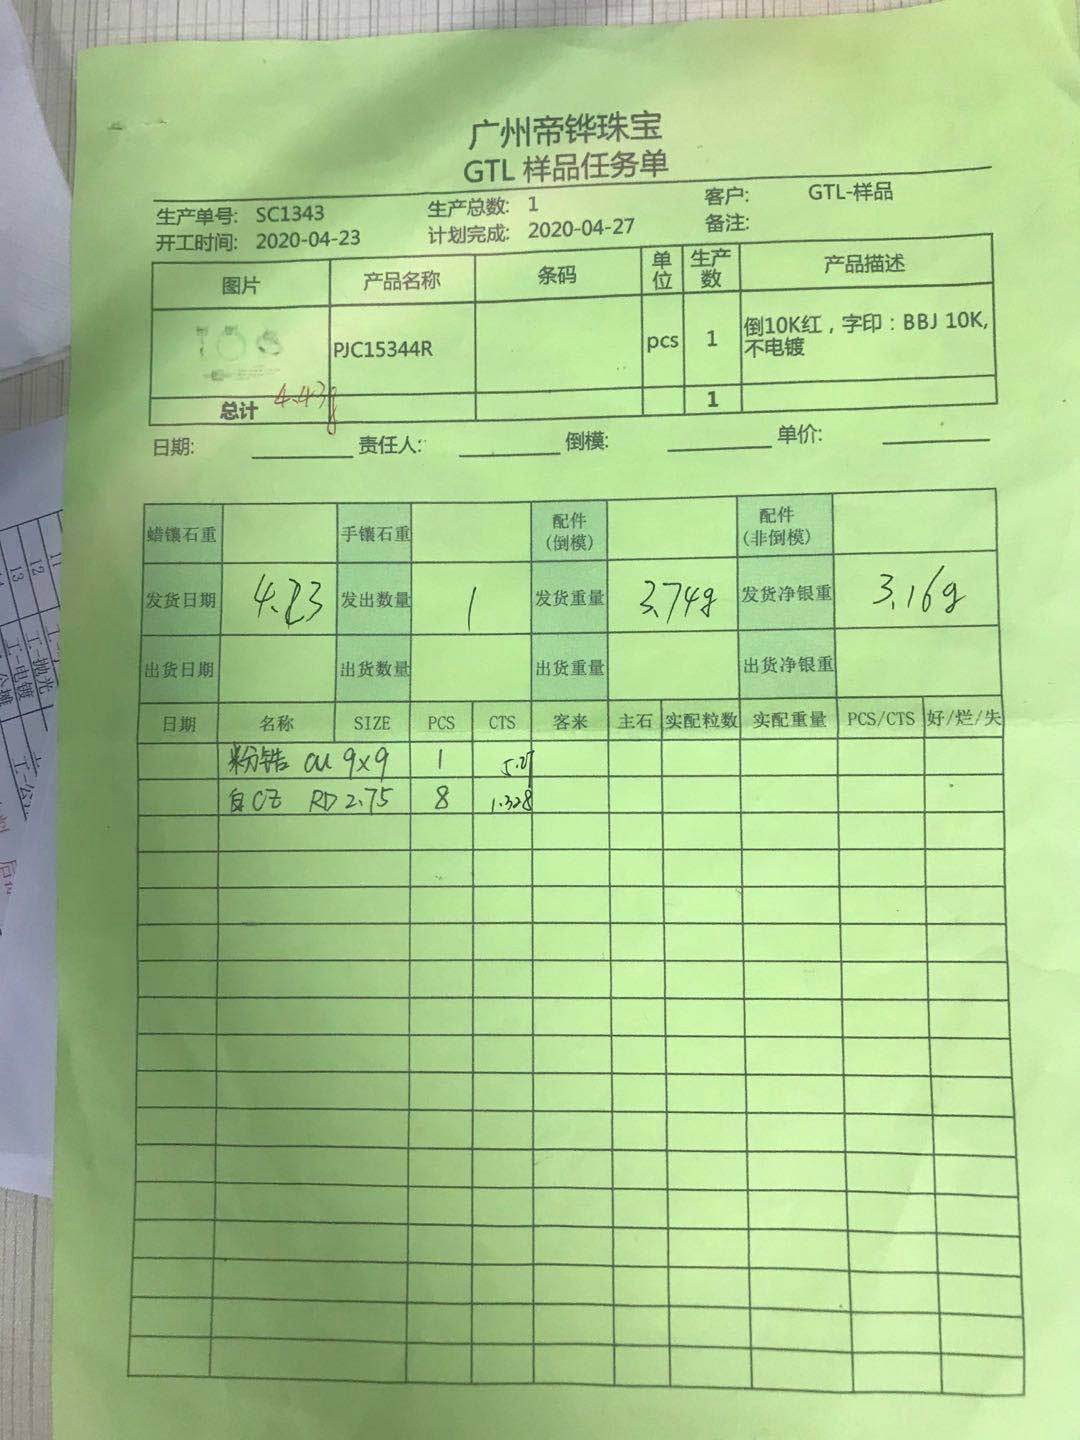 广州帝铧珠宝
GTL 样品任务单
生产单号: SC1343 生产总数: 1 客户: GTL-样品
开工时间: 2020-04-23 计划完成: 2020-04-27 备注:
图片 产品名称 条码 单位 生产数 产品描述
PJC15344R pcs 1 倒10K红，字印：BBJ 10K,
不电镀
总计 4.43g 1
日期: 责任人: 倒模: 单价:
蜡镶石重 手镶石重 配件(倒模) 配件(非倒模)
发货日期 4.23 发出数量 1 发货重量 3.74g 发货净银重 3.16g
出货日期 出货数量 出货重量 出货净银重
日期 名称 SIZE PCS CTS 客来 主石 实配粒数 实配重量 PCS/CTS 好/烂/失
粉锆 CU 9×9 1
白CZ RD 2.75 8 1.328
11
12
13
工-抛光
工-电镀